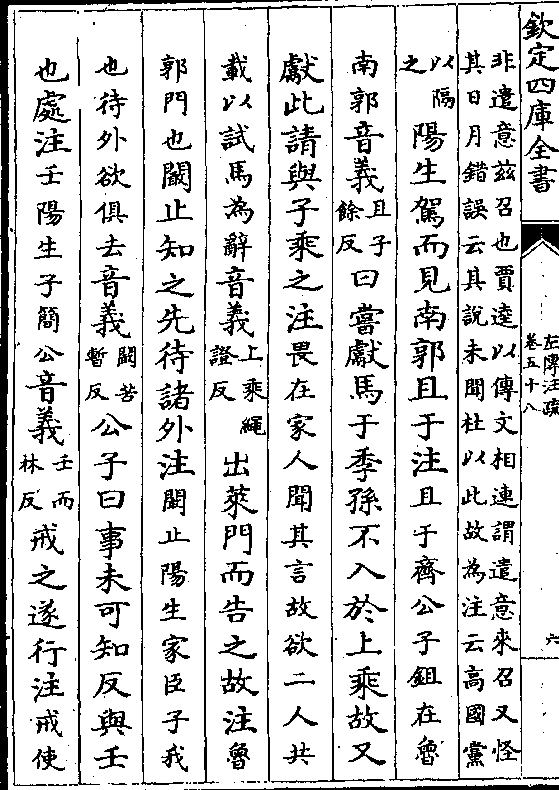 欽定四庫全書
左傳注疏
卷五十八
六
非遣意茲召也賈逵以傳文相連謂遣意來召又怪
其日月錯誤云其說未聞杜以此故為注云高國黨
以隔
之
陽生駕而見南郭且于注且于齊公子鉏在魯
南郭音義且子
餘反曰嘗獻馬于季孫不入於上乘故又
獻此請與子乘之注畏在家人聞其言故欲二人共
載以試馬為辭音義上乘繩
證反
出萊門而告之故注魯
郭門也闞止知之先待諸外注闞止陽生家臣子我
也待外欲俱去音義闞苦
暫反公子曰事未可知反與壬
也處注壬陽生子簡公音義壬而
林反戒之遂行注戒使